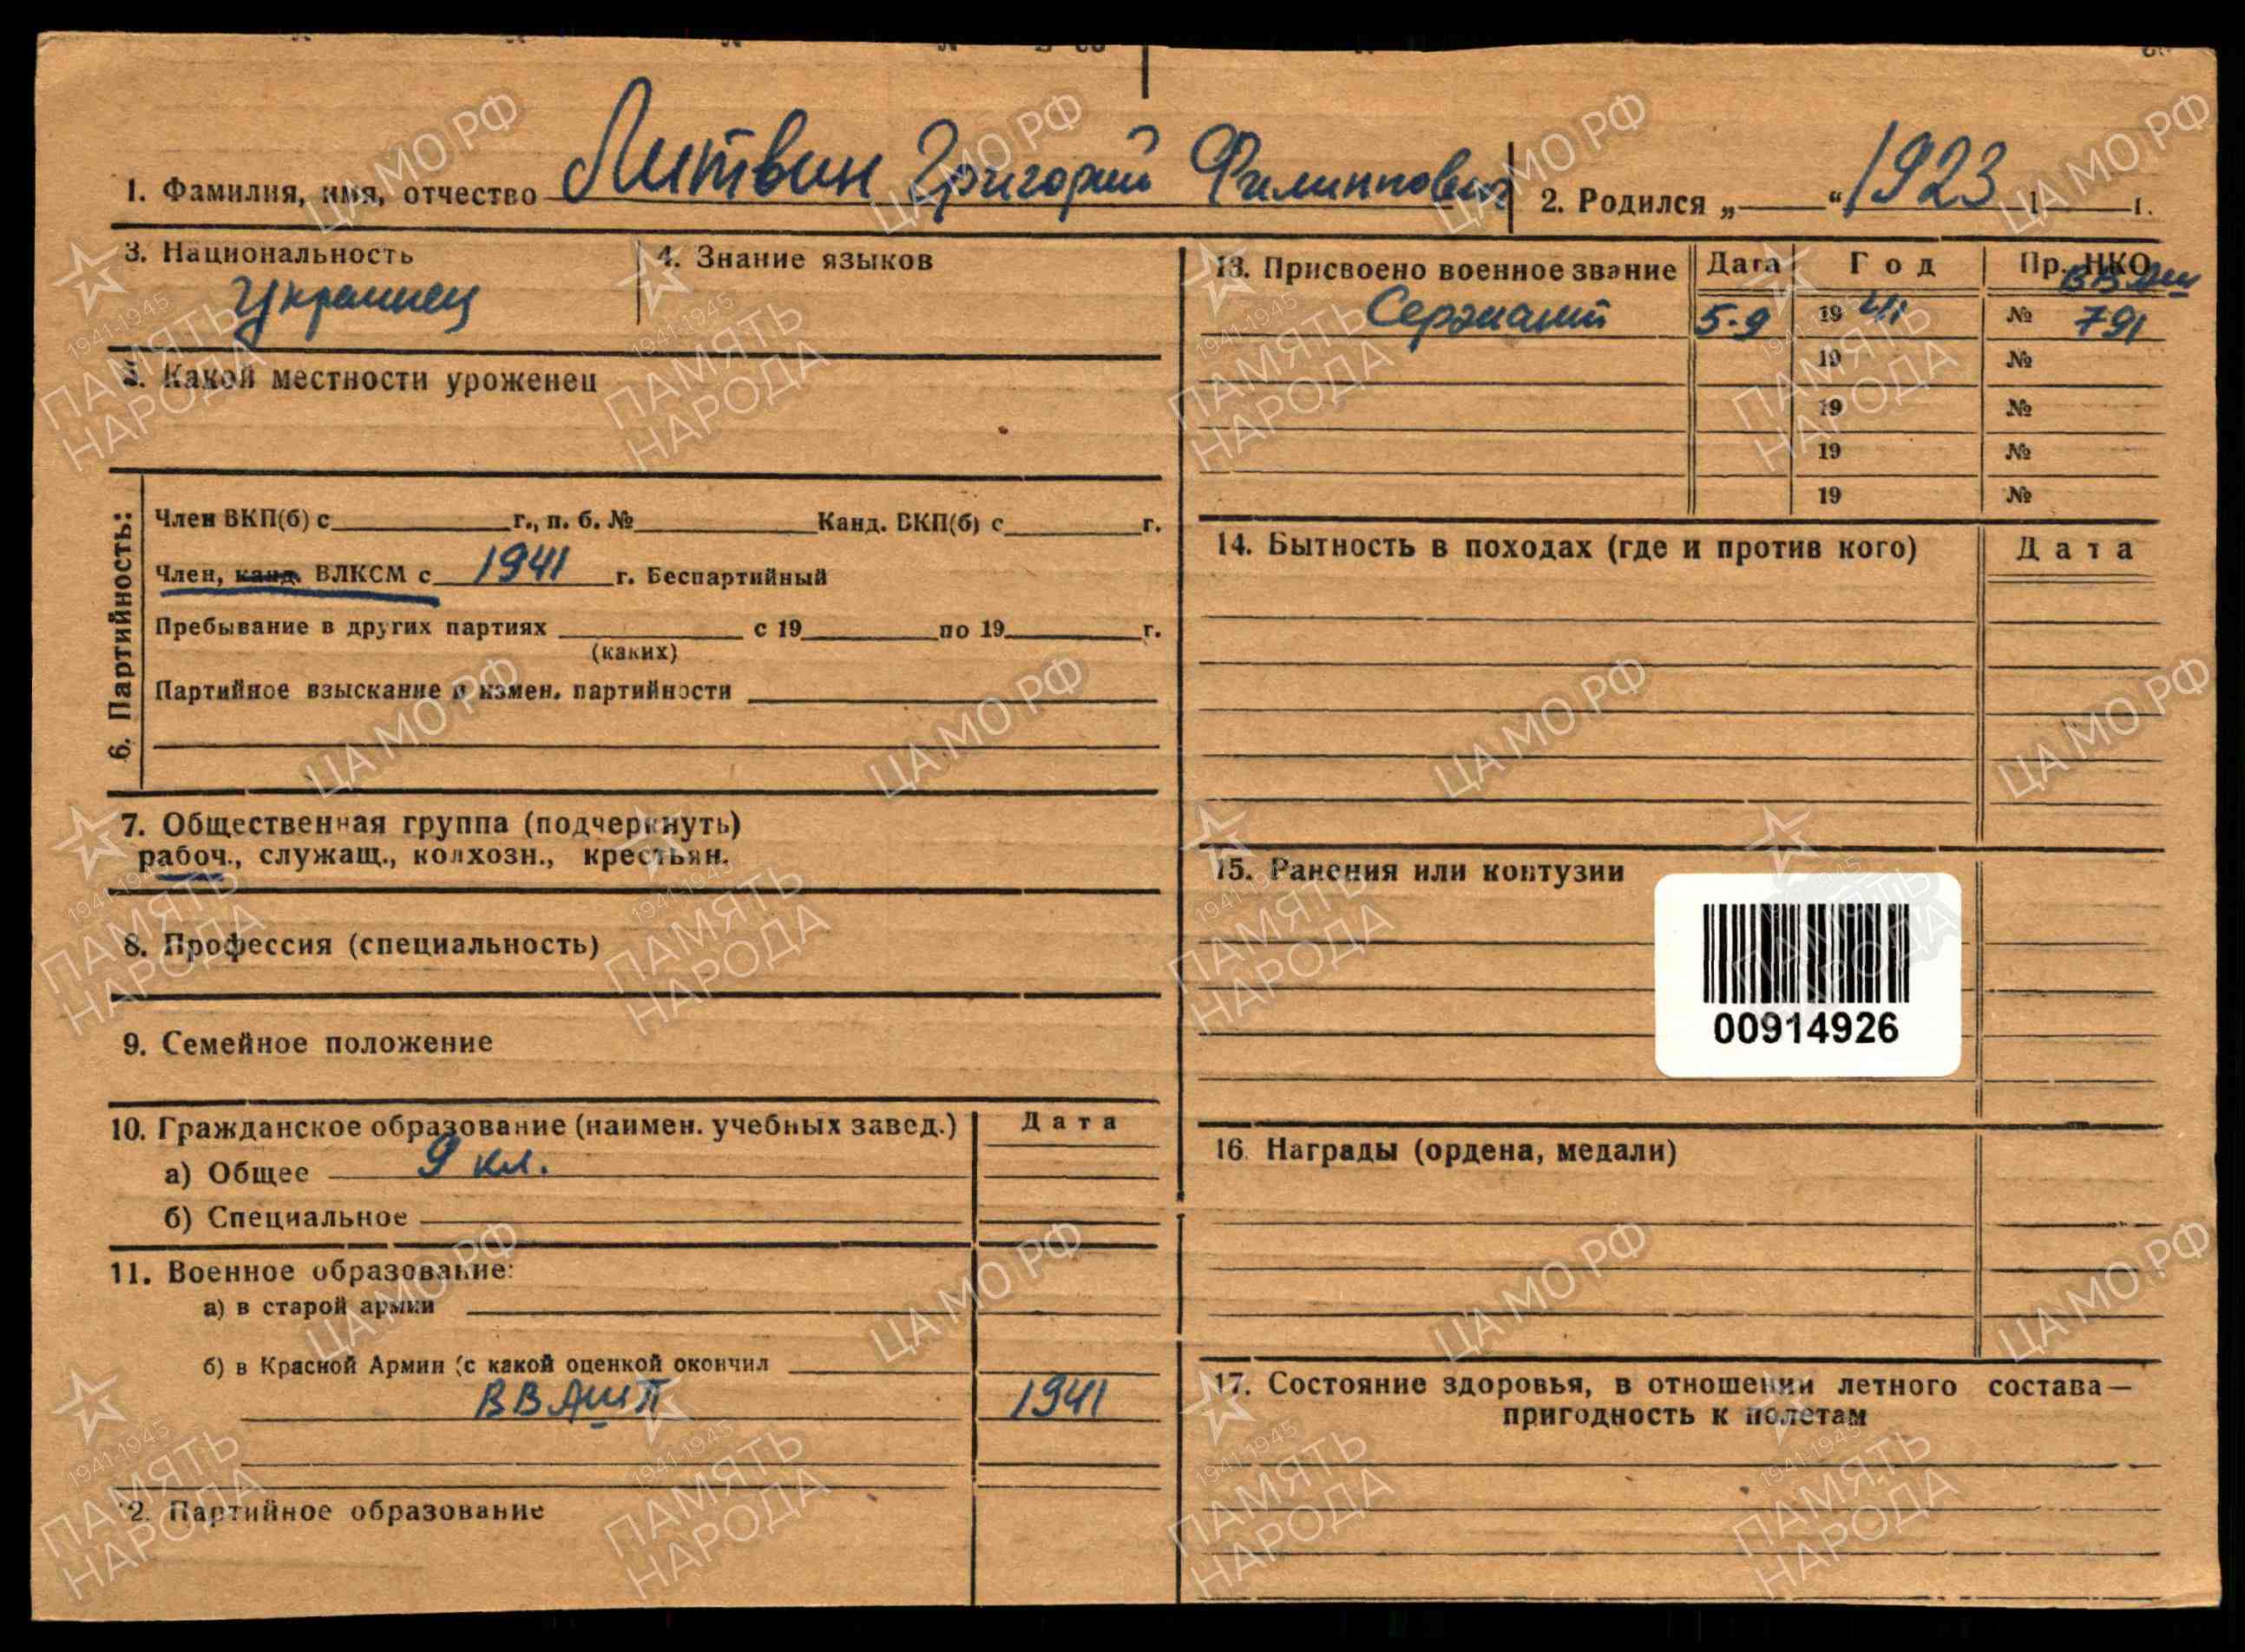 1. Фамилия, имя, отчество Литвин Григорий Филиппович
2. Родился „ “ 1923 1 г.
3. Национальность
Украинец
4. Знание языков
5. Какой местности уроженец
6. Партийность:
Член ВКП(б) с г., п. б. № Канд. ВКП(б) с г.
Член, канд. ВЛКСМ с 1941 г. Беспартийный
Пребывание в других партиях с 19 по 19 г.
(каких)
Партийное взыскание и измен. партийности
7. Общественная группа (подчеркнуть)
рабоч., служащ., колхозн., крестьян.
8. Профессия (специальность)
9. Семейное положение
10. Гражданское образование (наимен. учебных завед.) Дата
а) Общее 9 кл.
б) Специальное
11. Военное образование:
а) в старой армии
б) в Красной Армии (с какой оценкой окончил
ВВАШП 1941
12. Партийное образование
13. Присвоено военное звание Дата Год Пр. НКО
ВВАШ
Сержант 5-9 1941 № 791
19 №
19 №
19 №
19 №
14. Бытность в походах (где и против кого) Дата
15. Ранения или контузии
00914926
16. Награды (ордена, медали)
17. Состояние здоровья, в отношении летного состава—
пригодность к полетам
ЦА МО РФ
1941-1945
ПАМЯТЬ
НАРОДА